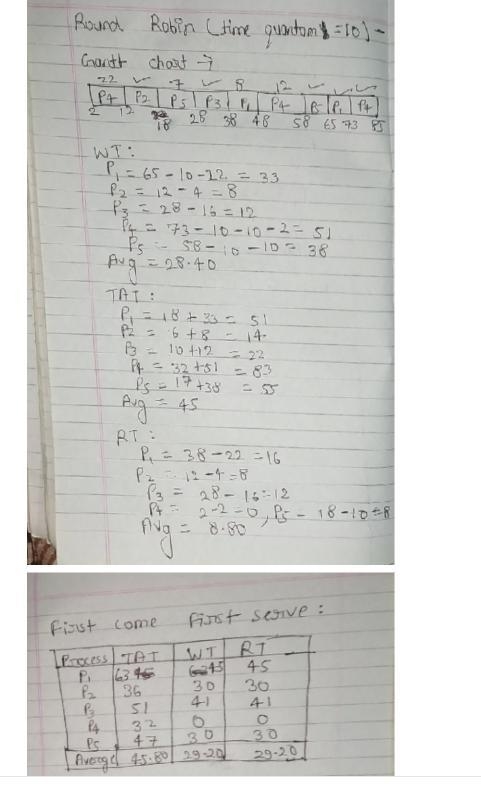 Round Robin (time quantom = 10) -
Gantt chart →
22 ✓ 7 ✓ 8 12 ✓ ✓ ✓
P4 P2 P5 P3 P1 P4 P5 P1 P4
2 12 18 28 38 48 58 65 73 85
WT :
P1 = 65 - 10 - 22 = 33
P2 = 12 - 4 = 8
P3 = 28 - 16 = 12
P4 = 73 - 10 - 10 - 2 = 51
P5 = 58 - 10 - 10 = 38
Avg = 28.40
TAT :
P1 = 18 + 33 = 51
P2 = 6 + 8 = 14
P3 = 10 + 12 = 22
P4 = 32 + 51 = 83
P5 = 17 + 38 = 55
Avg = 45
RT :
P1 = 38 - 22 = 16
P2 = 12 - 4 = 8
P3 = 28 - 16 = 12
P4 = 2 - 2 = 0, P5 - 18 - 10 = 8
Avg = 8.80
First come First serve :
Process TAT WT RT
P1 63 45 45
P2 36 30 30
P3 51 41 41
P4 32 0 0
P5 47 30 30
Average 45.80 29.20 29.20